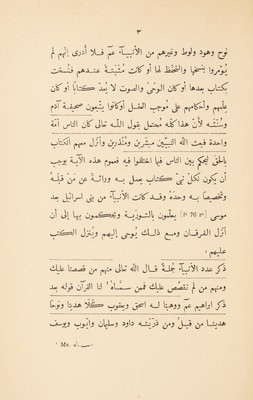 ٣
نوح وهود ولوط وغيرهم من الأنبياء عم فلا أدرى إنهم لم
يُؤمروا بنسخها والتحفّظ لها أو كانت مُثبَتة عندهم فنُسخت
بكتاب بعدها أو كان الوحىُ والصوت لا يُعدّ كتابًا أو كان
علمهم وأحكامهم على موجب العقل أو كانوا يتّبعون صحيفة آدم
وسُنَّتَه لأنّ هذا كلّه محتمل يقول اللّه تعالى كان الناس أُمّةً
واحدة فبعث اللّه النبيّين مبشّرين ومُنذرين وأنزل معهم الكتاب
بالحقّ ليحكم بين الناس فيما اختلفوا فيه فعموم هذه الآية يوجب
أن يكون لكلّ نبىّ كتاب يعمل به وراثة عن مَن قبله
وتخصيصًا به وحده وقد كانت الأنبياء من بنى اسرائيل بعد
موسى [76 r°] يعلمون بالتورية ويحكمون بها إلى أن
أنزل الفرقان ومع ذلك يُوحى إليهم ويُنزل الكتب
عليهم،
ذكر عدد الأنبياء جُملةً قال اللّه تعالى منهم من قصصنا عليك
ومنهم من لم نقصُص عليك فمن سماه¹ لنا القرآن قوله بعد
ذكر ابرهيم عم ووهبنا له اسحق ويعقوب كُلًّا هدينا ونوحًا
هدينا من قبلُ ومن ذرّيّته داود وسليمان وأيّوب ويوسف
¹ Ms.